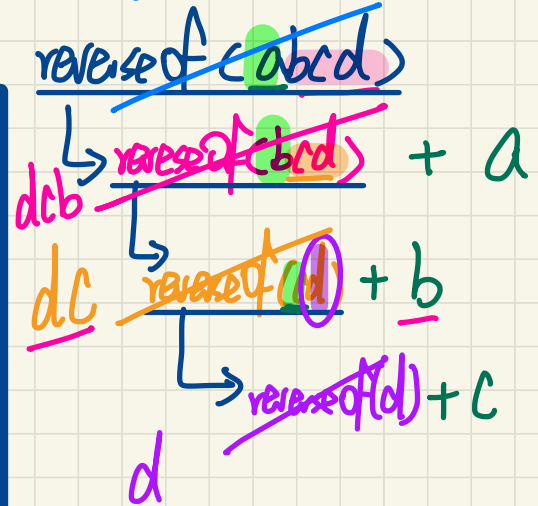 reverseof (abcd)
reverseof (bcd) + a
dcb
reverseof (cd) + b
dc
reverseof (d) + c
d